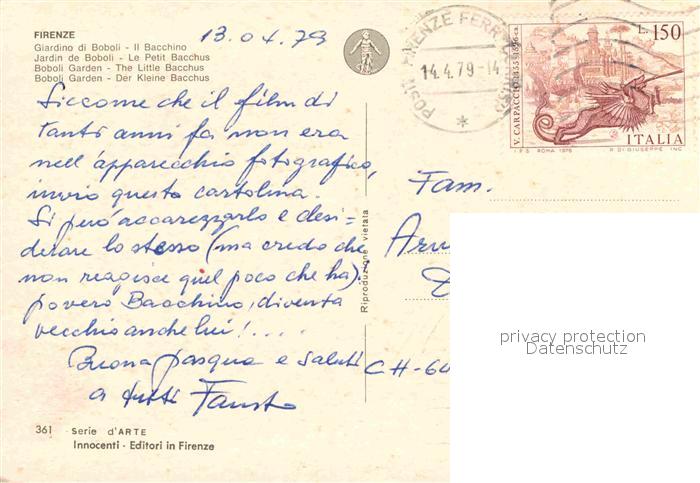 FIRENZE
Giardino di Boboli - Il Bacchino
Jardin de Boboli - Le Petit Bacchus
Boboli Garden - The Little Bacchus
Boboli Garden - Der Kleine Bacchus
13.04.79
14.4.79-14
L. 150
V. CARPACCIO
ITALIA
I.P.S. ROMA 1976
R. DI GIUSEPPE INC.
Siccome che il film di
tanti anni fa non era
nell'apparecchio fotografico,
invio questa cartolina.
Si però accarezzarlo e desi=
derare lo stesso (ma credo che
non reagisce quel poco che ha).
povero Bacchino, diventa
vecchio anche lui!....
Buona pasqua e saluti
a tutti Fausto
Riproduzione vietata
Fam.
CH-64
privacy protection
Datenschutz
361 Serie d'ARTE
Innocenti - Editori in Firenze